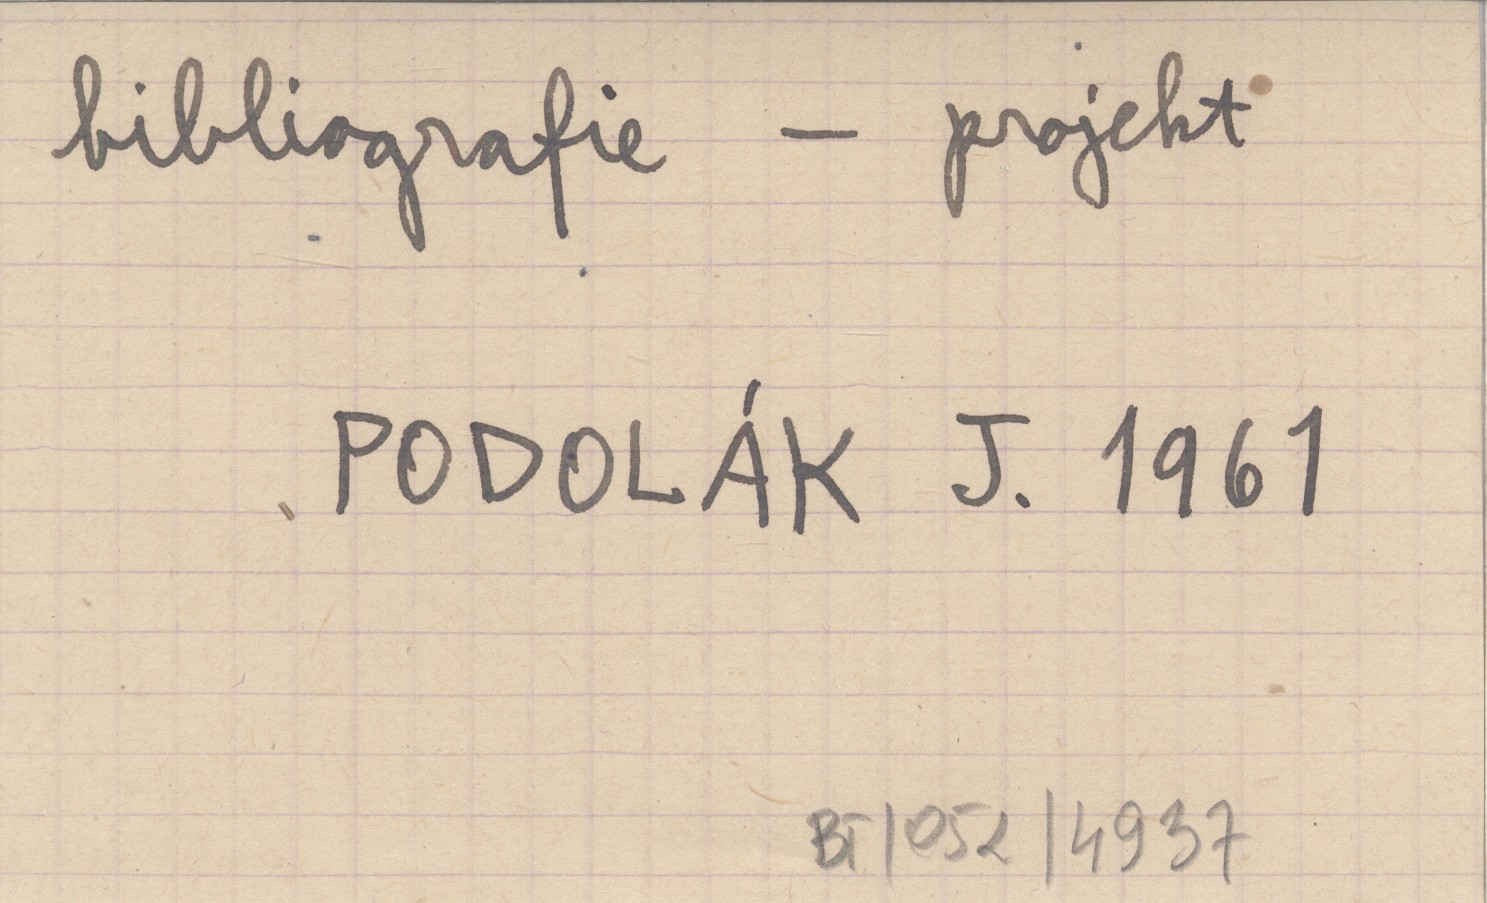 bibliografie - projekt
PODOLÁK J. 1961
BT/052/4937